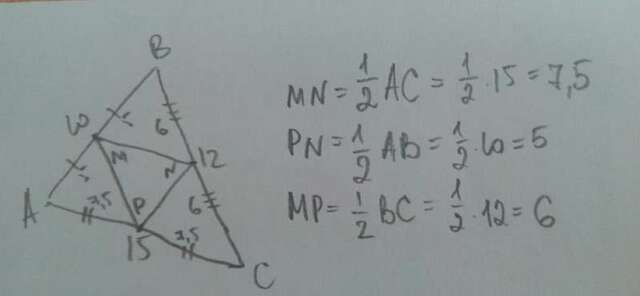 B
10
6
M
N
12
A
7,5
P
6
15
7,5
C
MN = 1/2 AC = 1/2 · 15 = 7,5
PN = 1/2 AB = 1/2 · 10 = 5
MP = 1/2 BC = 1/2 · 12 = 6